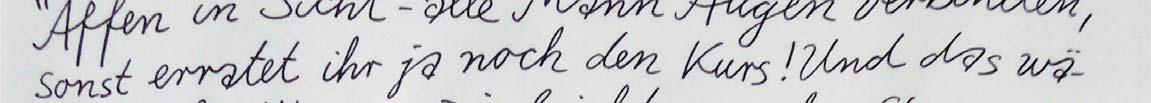 "Affen in Sicht - alle Mann Augen verbinden,
sonst erratet ihr ja noch den Kurs! Und das wä-